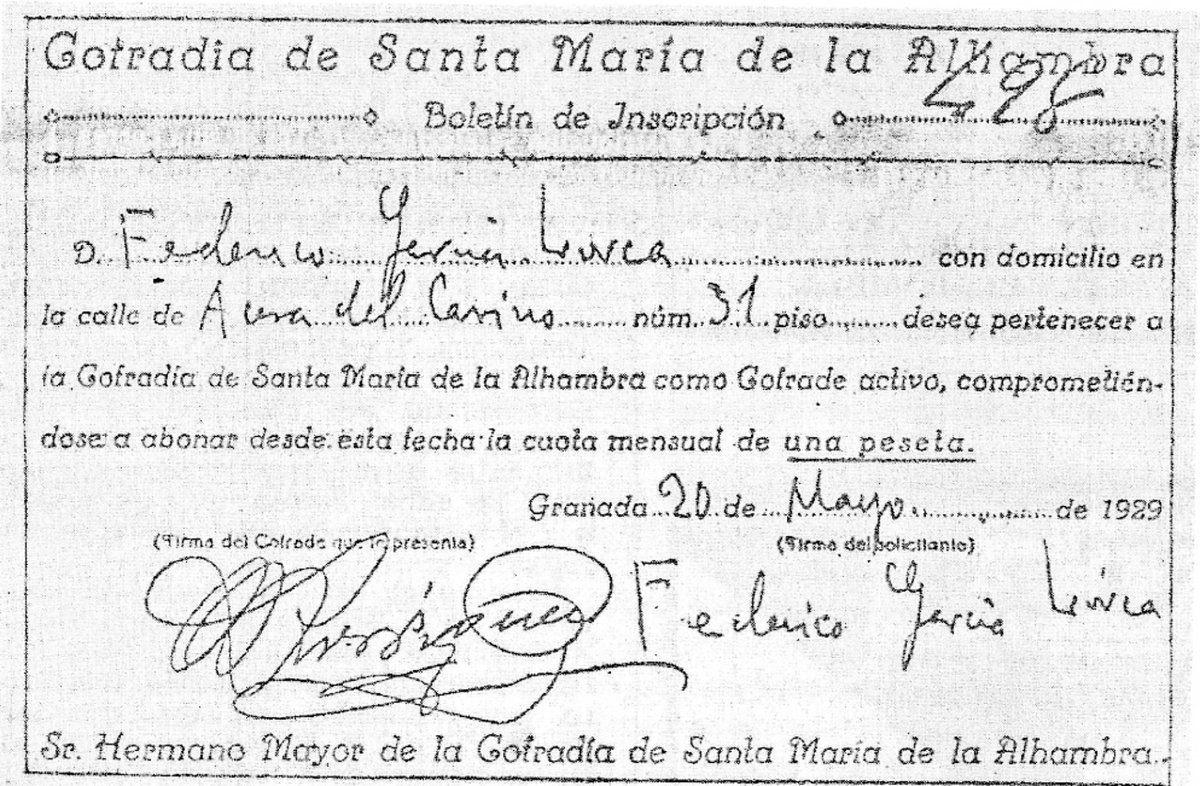 Cofradía de Santa María de la Alhambra
498
Boletín de Inscripción
D. Federico García Lorca con domicilio en
la calle de Acera del Casino núm. 31 piso desea pertenecer a
la Cofradía de Santa María de la Alhambra como Cofrade activo, comprometién-
dose a abonar desde esta fecha la cuota mensual de una peseta.
Granada 20 de Mayo de 1929
(Firma del Cofrade que lo presenta) (Firma del solicitante)
Federico García Lorca
Sr. Hermano Mayor de la Cofradía de Santa María de la Alhambra.